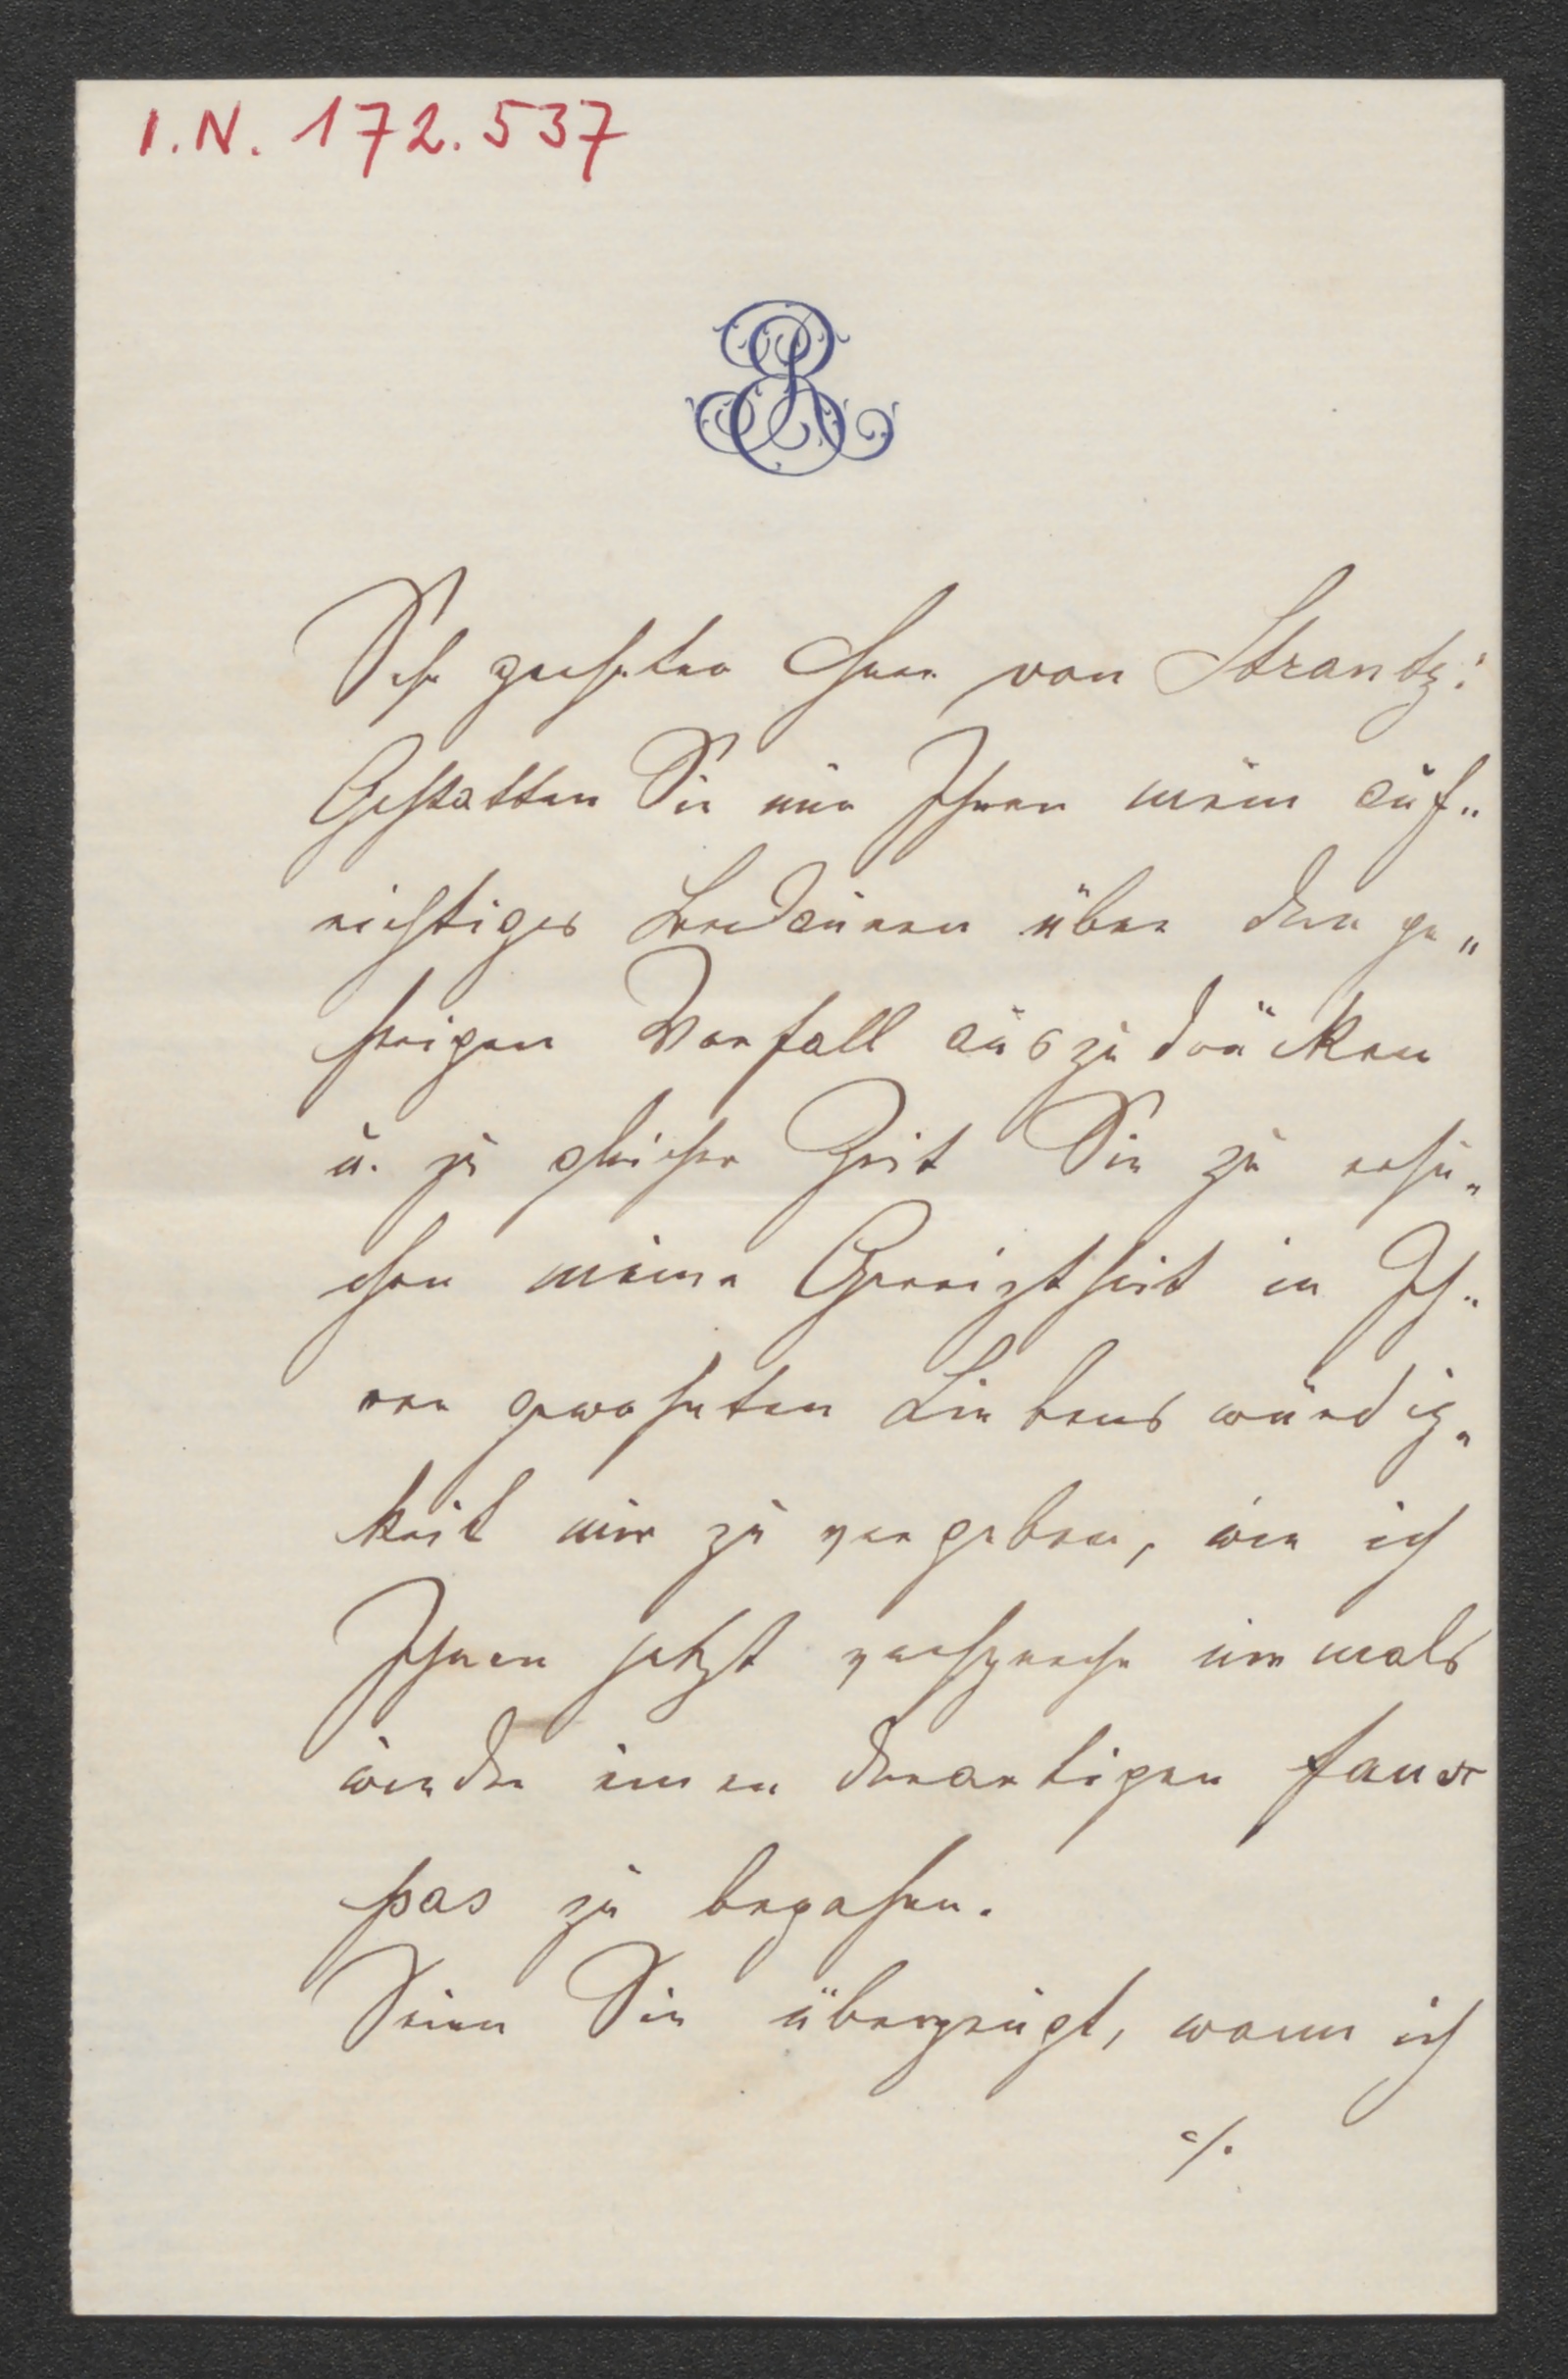 I.N. 172.537
Sehr geehrter Herr von Strantz!
Gestatten Sie mir Ihnen mein auf„
richtiges Bedauern über den ge„
strigen Vorfall auszudrücken
u. zu gleicher Zeit Sie zu ersu„
chen meine Gereiztheit in Ih„
rer gewohnten Liebenswürdig„
keit mir zu vergeben, wie ich
Ihnen jetzt verspreche niemals
wieder einen derartigen faux
pas zu begehen.
Seien Sie überzeugt, wenn ich
./.